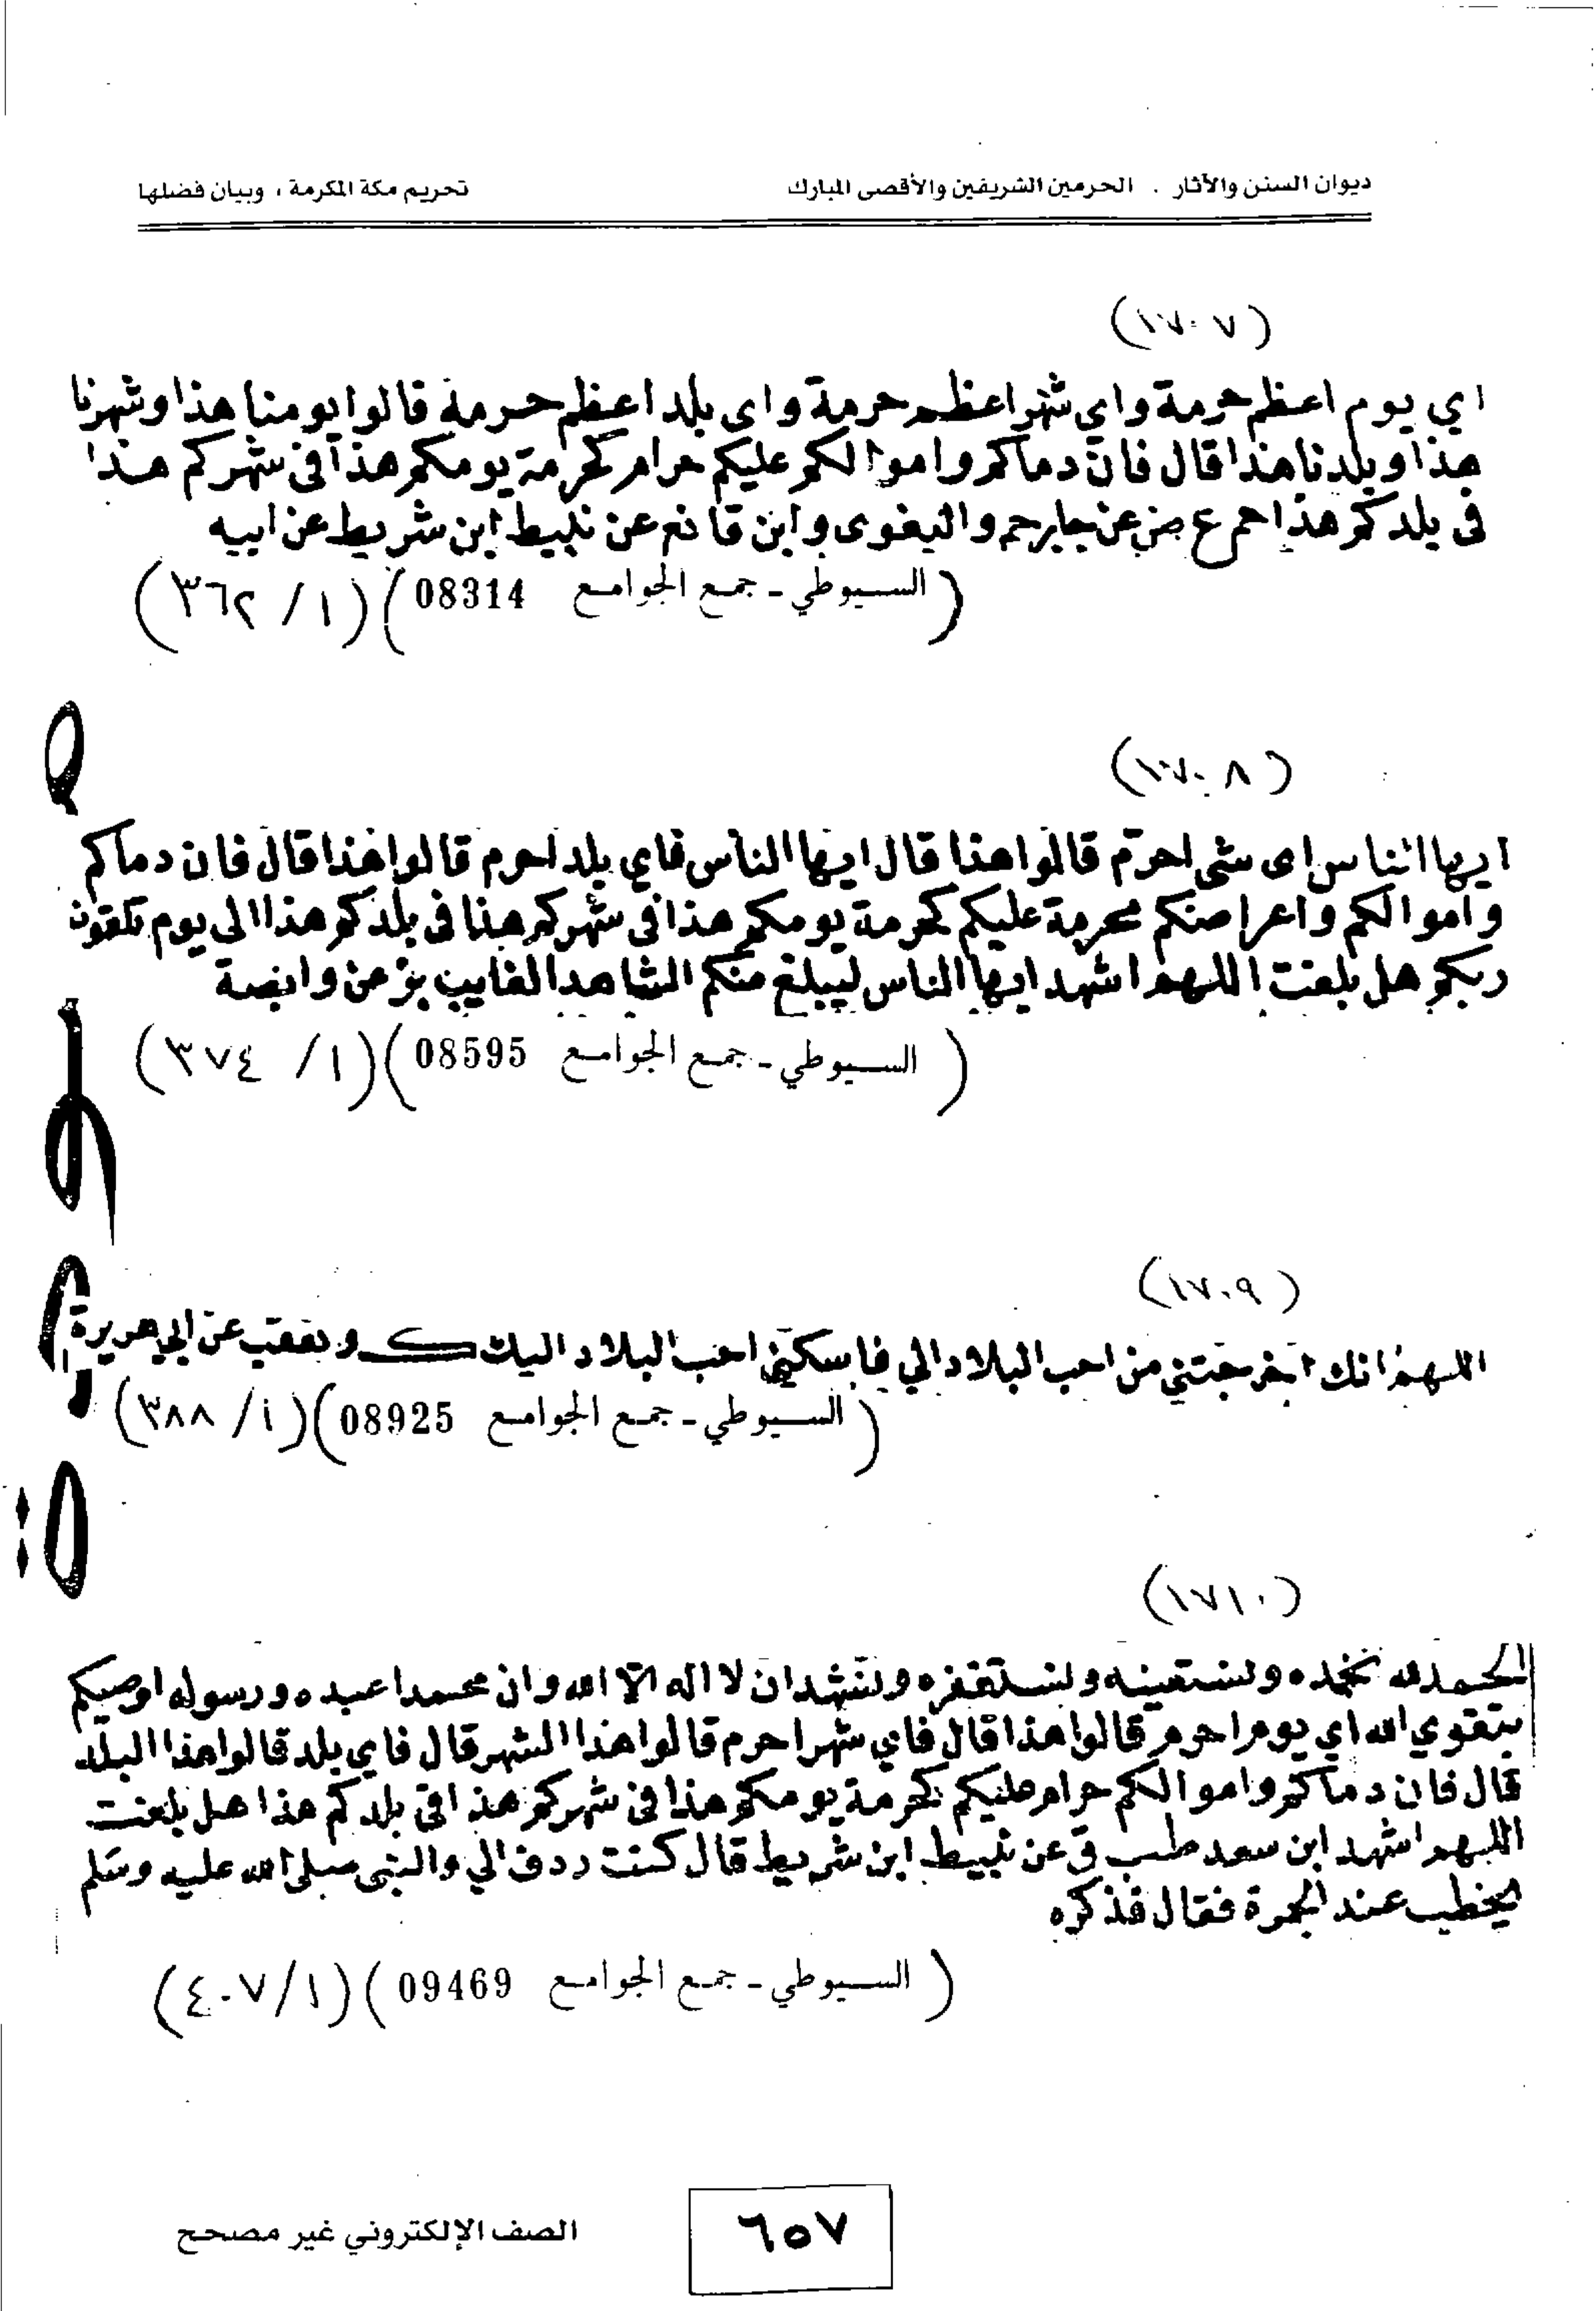 ديوان السنن والآثار . الحرمين الشريفين والأقصى المبارك
تحريم مكة المكرمة ، وبيان فضلها
(١٧٠٧)
اي يوم اعظم حرمة واي شهر اعظم حرمة واى بلد اعظم حرمة قالوا يومنا هذا وشهرنا
هذا وبلدنا هذا قال فان دماكم واموالكم عليكم حرام كحرمة يومكم هذا في شهركم هذا
فى بلدكم هذا حم ع ض عن جابر حم والبغوى وابن قانع عن نبيط ابن شريط عن ابيه
(السيوطي - جمع الجوامع 08314) (١/ ٣٦٢)
(١٧٠٨)
ايها الناس اى شى احرم قالوا هذا قال ايها الناس فاي بلد احرم قالوا هذا قال فان دماكم
واموالكم واعراضكم محرمة عليكم كحرمة يومكم هذا في شهركم هذا فى بلدكم هذا الى يوم تلقون
ربكم هل بلغت اللهم اشهد ايها الناس ليبلغ منكم الشاهد الغايب بز عن وابصة
(السيوطي - جمع الجوامع 08595) (١/ ٣٧٤)
(١٧٠٩)
اللهم انك اخرجتني من احب البلاد الي فاسكني احب البلاد اليك ك وتعقب عن ابي هريرة
(السيوطي - جمع الجوامع 08925) (١/ ٣٨٨)
(١٧١٠)
الحمد لله نحمده ونستعينه ونستغفره ونشهد ان لا اله الا الله وان محمدا عبده ورسوله اوصيكم
بتقوي الله اي يوم احرم قالوا هذا قال فاي شهر احرم قالوا هذا الشهر قال فاي بلد قالوا هذا البلد
قال فان دماكم واموالكم حرام عليكم كحرمة يومكم هذا في شهركم هذا في بلدكم هذا هل بلغت
اللهم اشهد ابن سعد طب ق عن نبيط ابن شريط قال كنت ردف ابي والنبى صلى الله عليه وسلم
يخطب عند الجمرة فقال فذكره
(السيوطي - جمع الجوامع 09469) (١/ ٤٠٧)
٦٥٧
الصف الإلكتروني غير مصحح